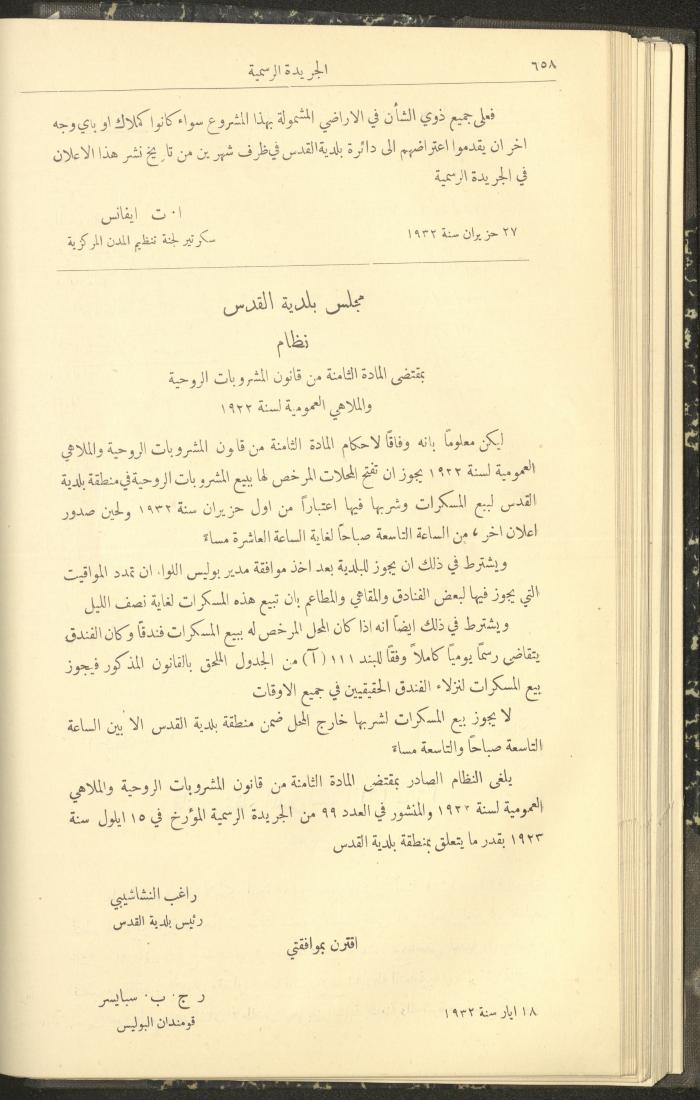 ٦٥٨
الجريدة الرسمية
فعلى جميع ذوي الشأن في الاراضي المشمولة بهذا المشروع سواء كانوا كملاك او باي وجه
اخر ان يقدموا اعتراضهم الى دائرة بلدية القدس في ظرف شهرين من تاريخ نشر هذا الاعلان
في الجريدة الرسمية
ا. ت ايفانس
٢٧ حزيران سنة ١٩٣٢
سكرتير لجنة تنظيم المدن المركزية
مجلس بلدية القدس
نظام
بمقتضى المادة الثامنة من قانون المشروبات الروحية
والملاهي العمومية لسنة ١٩٢٢
ليكن معلوماً بانه وفاقاً لاحكام المادة الثامنة من قانون المشروبات الروحية والملاهي
العمومية لسنة ١٩٢٢ يجوز ان تفتح المحلات المرخص لها ببيع المشروبات الروحية في منطقة بلدية
القدس لبيع المسكرات وشربها فيها اعتباراً من اول حزيران سنة ١٩٣٢ ولحين صدور
اعلان اخر ، من الساعة التاسعة صباحاً لغاية الساعة العاشرة مساءً
ويشترط في ذلك ان يجوز للبلدية بعد اخذ موافقة مدير بوليس اللواء ان تمدد المواقيت
التي يجوز فيها لبعض الفنادق والمقاهي والمطاعم بان تبيع هذه المسكرات لغاية نصف الليل
ويشترط في ذلك ايضاً انه اذا كان المحل المرخص له ببيع المسكرات فندقاً وكان الفندق
يتقاضى رسماً يومياً كاملاً وفقاً للبند ١١١ (آ) من الجدول الملحق بالقانون المذكور فيجوز
بيع المسكرات لنزلاء الفندق الحقيقيين في جميع الاوقات
لا يجوز بيع المسكرات لشربها خارج المحل ضمن منطقة بلدية القدس الا بين الساعة
التاسعة صباحاً والتاسعة مساءً
يلغى النظام الصادر بمقتضى المادة الثامنة من قانون المشروبات الروحية والملاهي
العمومية لسنة ١٩٢٢ والمنشور في العدد ٩٩ من الجريدة الرسمية المؤرخ في ١٥ ايلول سنة
١٩٢٣ بقدر ما يتعلق بمنطقة بلدية القدس
راغب النشاشيبي
رئيس بلدية القدس
اقترن بموافقتي
ر. ج. ب. سبايسر
١٨ ايار سنة ١٩٣٢
قومندان البوليس